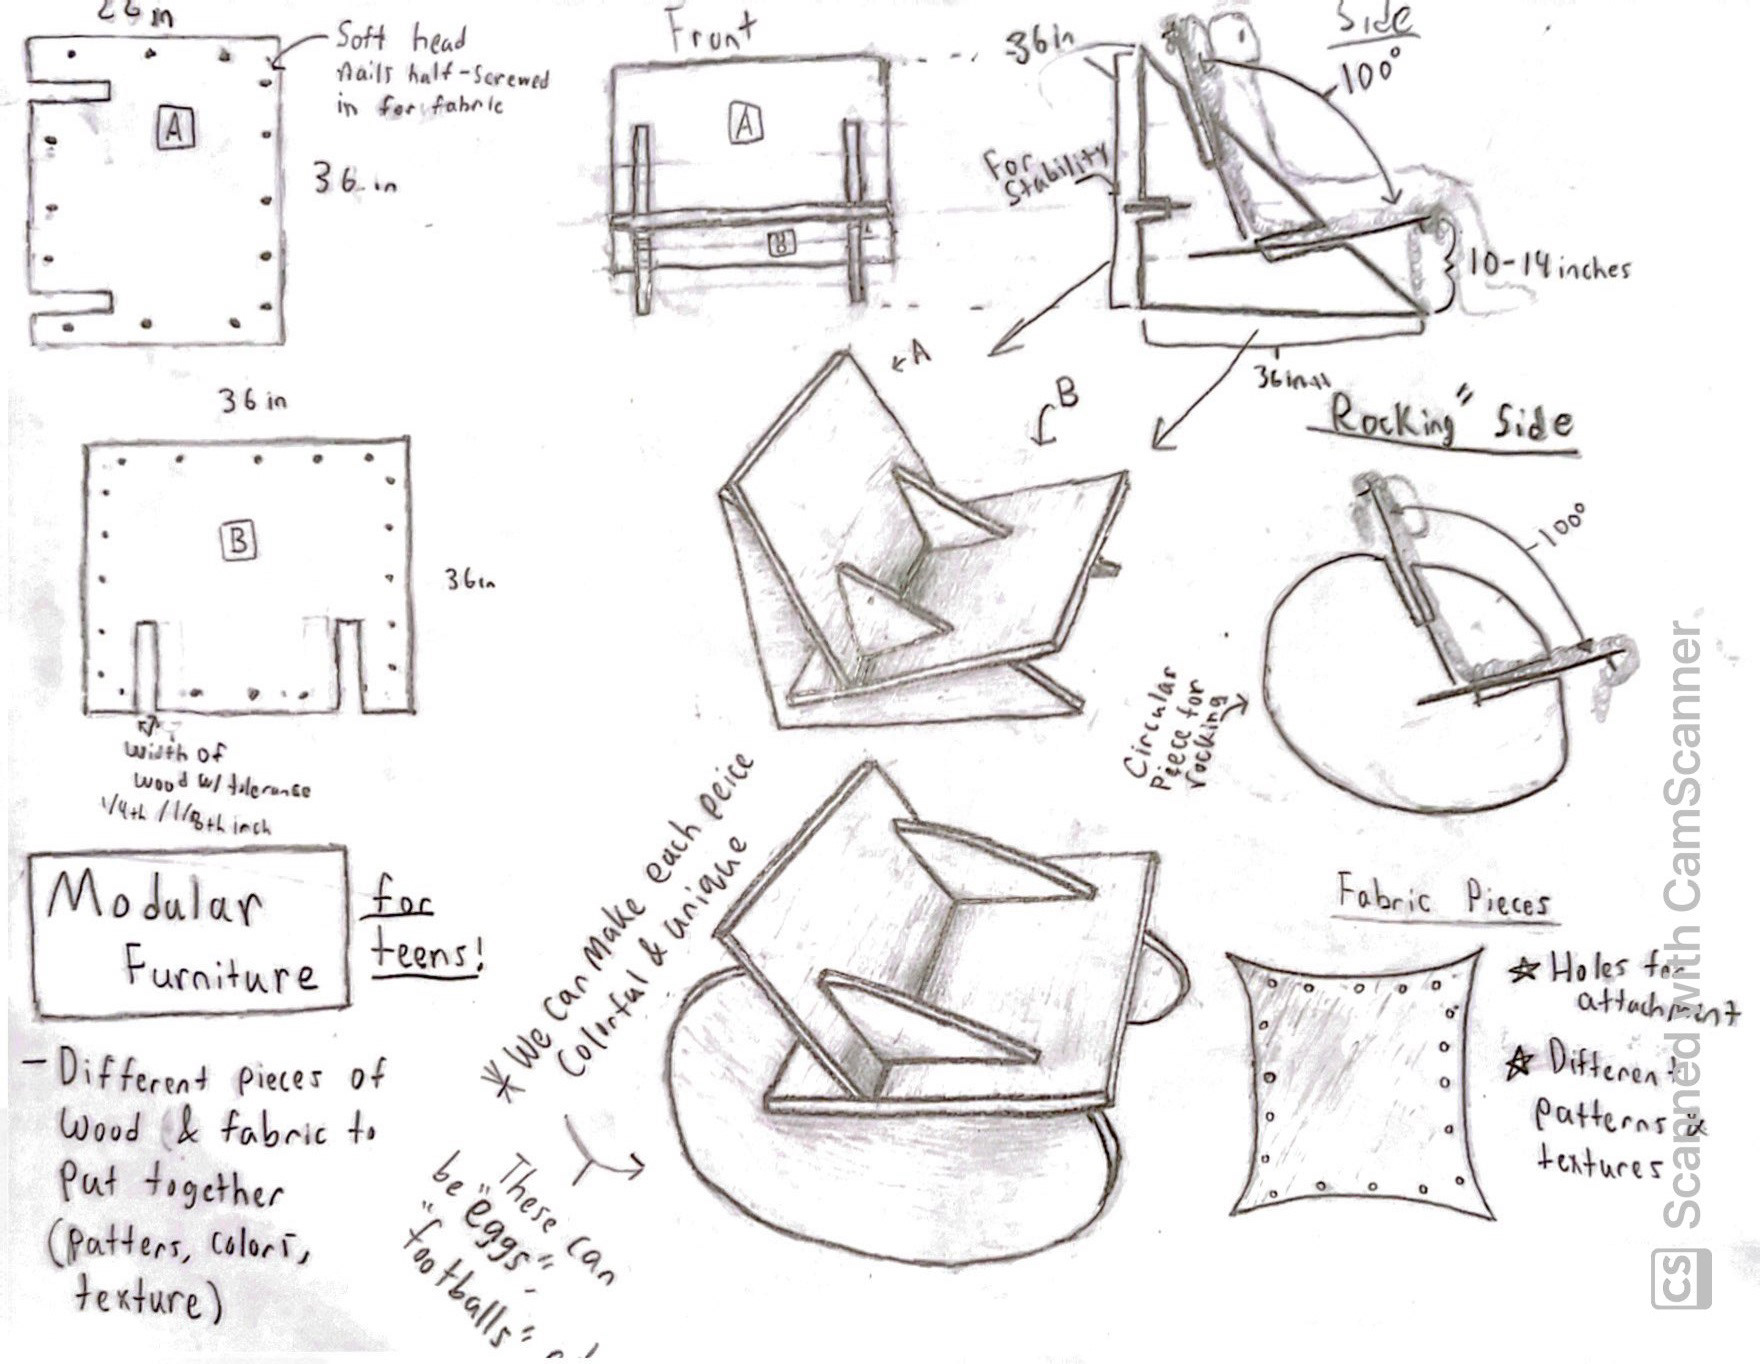 26 in
Soft head
nails half-screwed
in for fabric
A
36 in
Front
A
B
36 in
Side
100°
For
Stability
10-14 inches
36 in
← A
B
36 in
B
36 in
Width of
wood w/ tolerance
1/4th / 1/8th inch
Rocking" Side
100°
Circular
Piece for
rocking
Modular
Furniture
for
teens!
- Different pieces of
Wood & fabric to
Put together
(patters, colors,
texture)
* We can make each peice
Colorful & unique
These can
be "eggs"
"footballs"
Fabric Pieces
☆ Holes for
attachment
☆ Different
patterns &
textures
CS Scanned with CamScanner